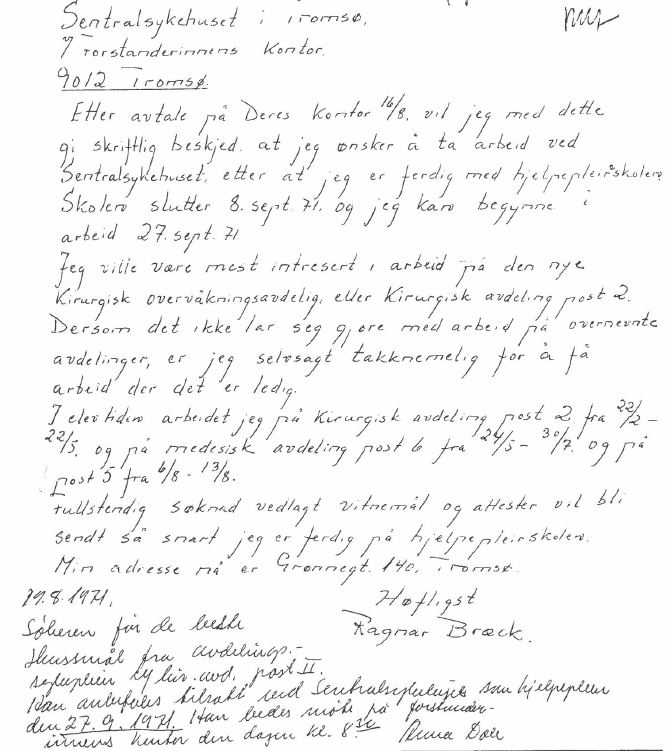 Sentralsykehuset i Tromsø,
Forstanderinnens Kontor.
9012 Tromsø.
Etter avtale på Deres Kontor 16/8. vil jeg med dette
gi skriftlig beskjed. at jeg ønsker å ta arbeid ved
Sentralsykehuset, etter at jeg er ferdig med hjelpepleirskolen
Skolen slutter 8. sept. 71. og jeg kan begynne i
arbeid 27. sept. 71.
Jeg ville være mest intresert i arbeid på den nye
Kirurgisk overvåkningsavdelig, eller Kirurgisk avdeling post 2.
Dersom det ikke lar seg gjøre med arbeid på overnevnte
avdelinger, er jeg selvsagt takknemelig for å få
arbeid der det er ledig.
I elevtiden arbeidet jeg på Kirurgisk avdeling post 2 fra 22/2 -
22/5. og på medesisk avdeling post 6 fra 24/5 - 30/7. og på
post 5 fra 6/8 - 13/8.
Fullstendig søknad vedlagt vitnemål og attester vil bli
sendt så snart jeg er ferdig på hjelpepleirskolen.
Min adresse nå er Grønnegt. 140, Tromsø.
Høfligst
Ragnar Bræck.
19.8.1971.
Søkeren får de beste
skussmål fra avdelings-
sykepleier kir. avd. post II.
Han anbefales tilsatt ved Sentralsykehuset som hjelpepleier
den 27.9.1971. Han bedes møte på forstander-
innens kontor den dagen kl. 8 30